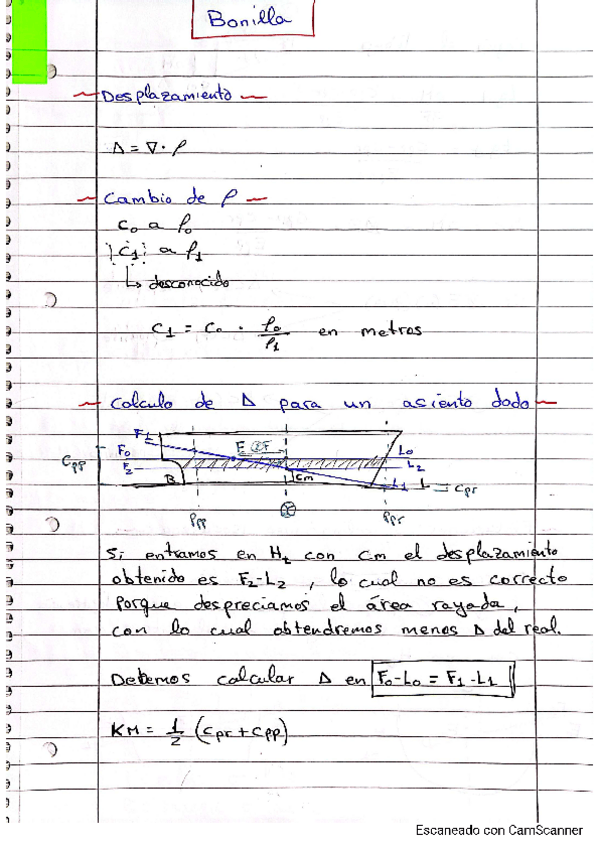 Bonilla
~Desplazamiento~
Δ = ∇ · ρ
~Cambio de ρ~
C₀ a ρ₀
C₁ a ρ₁
↳ desconocido
C₁ = C₀ · ρ₀/ρ₁ en metros
~Calculo de Δ para un asiento dado~
F₁
F₀ E F L₀
Cpp F₂ L₂
B Cm L₁ Cpr
Ppp Ppr
Si entramos en H₂ con Cm el desplazamiento
obtenido es F₂-L₂, lo cual no es correcto
porque despreciamos el área rayada,
con lo cual obtendremos menos Δ del real.
Debemos calcular Δ en F₀-L₀ = F₁-L₁
KM = 1/2 (Cpr + Cpp)
Escaneado con CamScanner